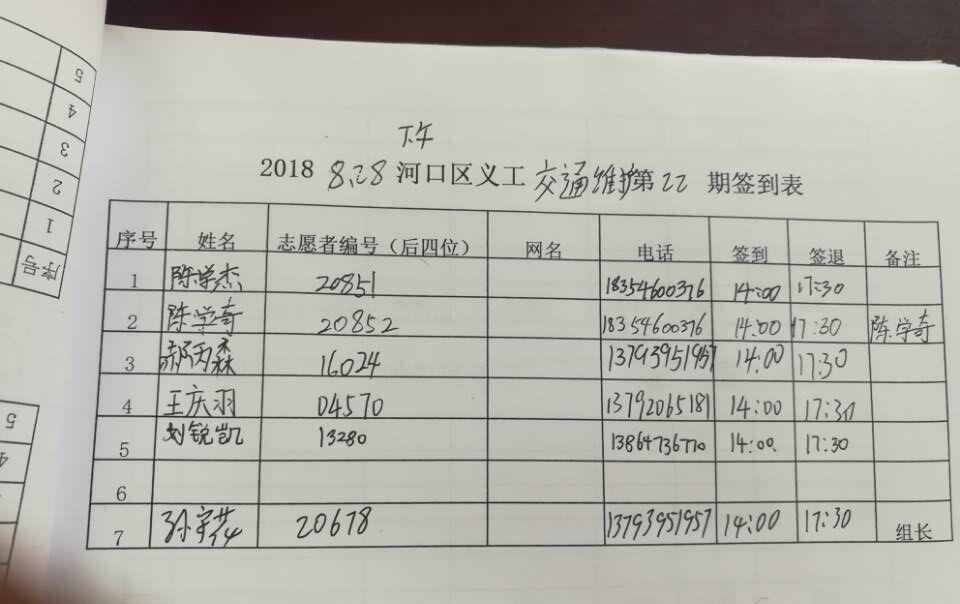 下午
2018 8.28 河口区义工 交通维护 第22 期签到表
序号 姓名 志愿者编号（后四位） 网名 电话 签到 签退 备注
1 陈学杰 20851 18354600376 14:00 17:30
2 陈学奇 20852 18354600376 14:00 17:30 陈学奇
3 郝丙森 16024 13793951957 14:00 17:30
4 王庆羽 04570 13792065181 14:00 17:30
5 刘锐凯 13280 13864736770 14:00 17:30
6
7 孙宇花 20678 13793951957 14:00 17:30 组长
5
4
3
2
1
序号
5
4